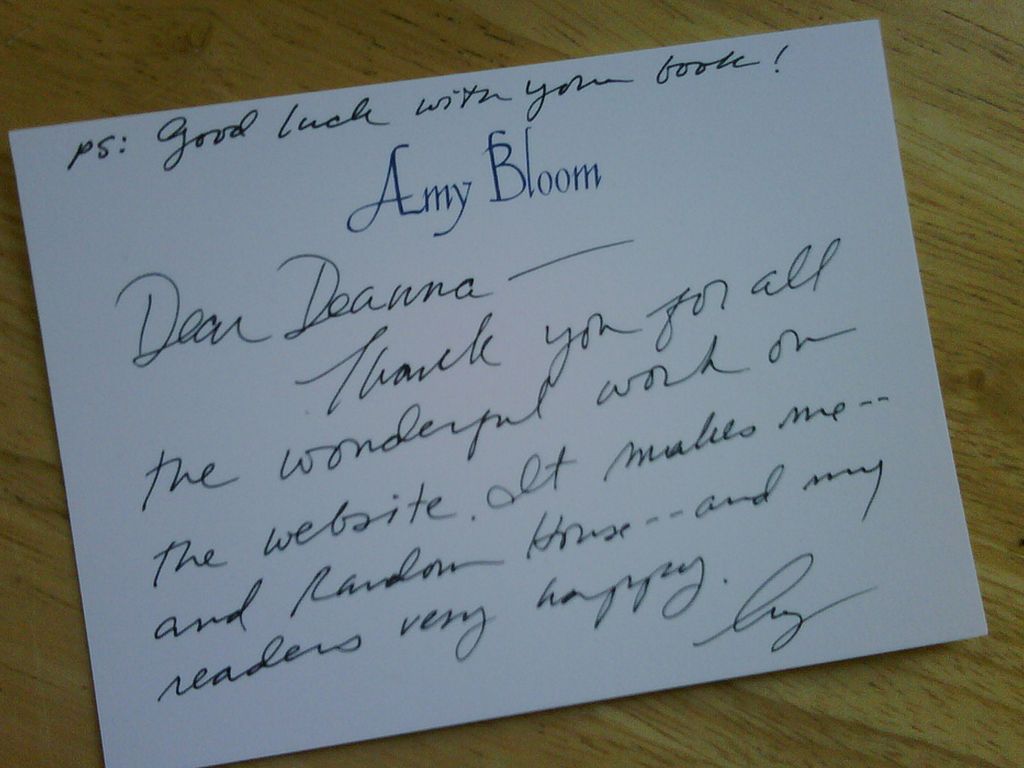 ps: Good luck with your book!
Amy Bloom
Dear Deanna —
Thank you for all
the wonderful work on
the website. It makes me--
and Random House--and my
readers very happy.
Amy